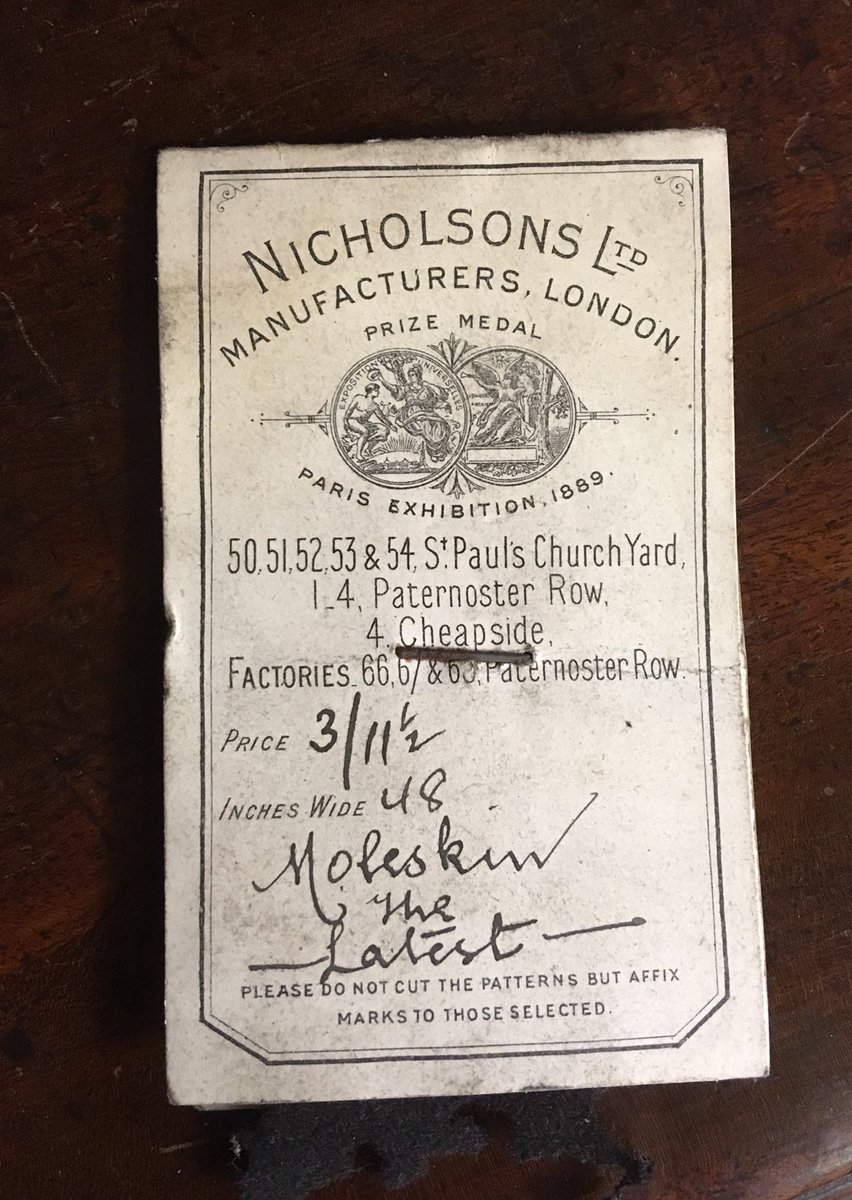 NICHOLSONS LTD
MANUFACTURERS, LONDON.
PRIZE MEDAL
EXPOSITION UNIVERSELLES
PARIS EXHIBITION, 1889.
50, 51, 52, 53 & 54, St. Paul's Church Yard,
1-4, Paternoster Row,
4, Cheapside,
FACTORIES_66, 67 & 68, Paternoster Row.
PRICE 3/11½
INCHES WIDE 48
Moleskin
The
Latest
PLEASE DO NOT CUT THE PATTERNS BUT AFFIX
MARKS TO THOSE SELECTED.